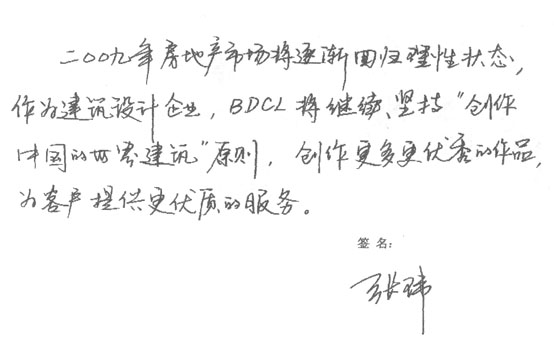 二00九年房地产市场将逐渐回归理性状态，
作为建筑设计企业，BDCL将继续、坚持“创作
中国的世界建筑”原则，创作更多更优秀的作品，
为客户提供更优质的服务。
签名：
张玮